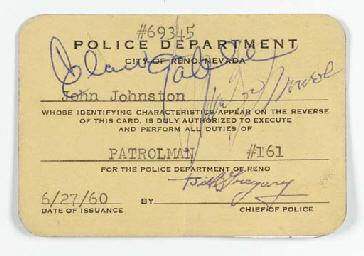 #69345
POLICE DEPARTMENT
CITY OF RENO, NEVADA
Clark Gable
John Johnston
WHOSE IDENTIFYING CHARACTERISTICS APPEAR ON THE REVERSE
OF THIS CARD, IS DULY AUTHORIZED TO EXECUTE
AND PERFORM ALL DUTIES OF
PATROLMAN #161
FOR THE POLICE DEPARTMENT OF RENO
6/27/60 BY
DATE OF ISSUANCE CHIEF OF POLICE